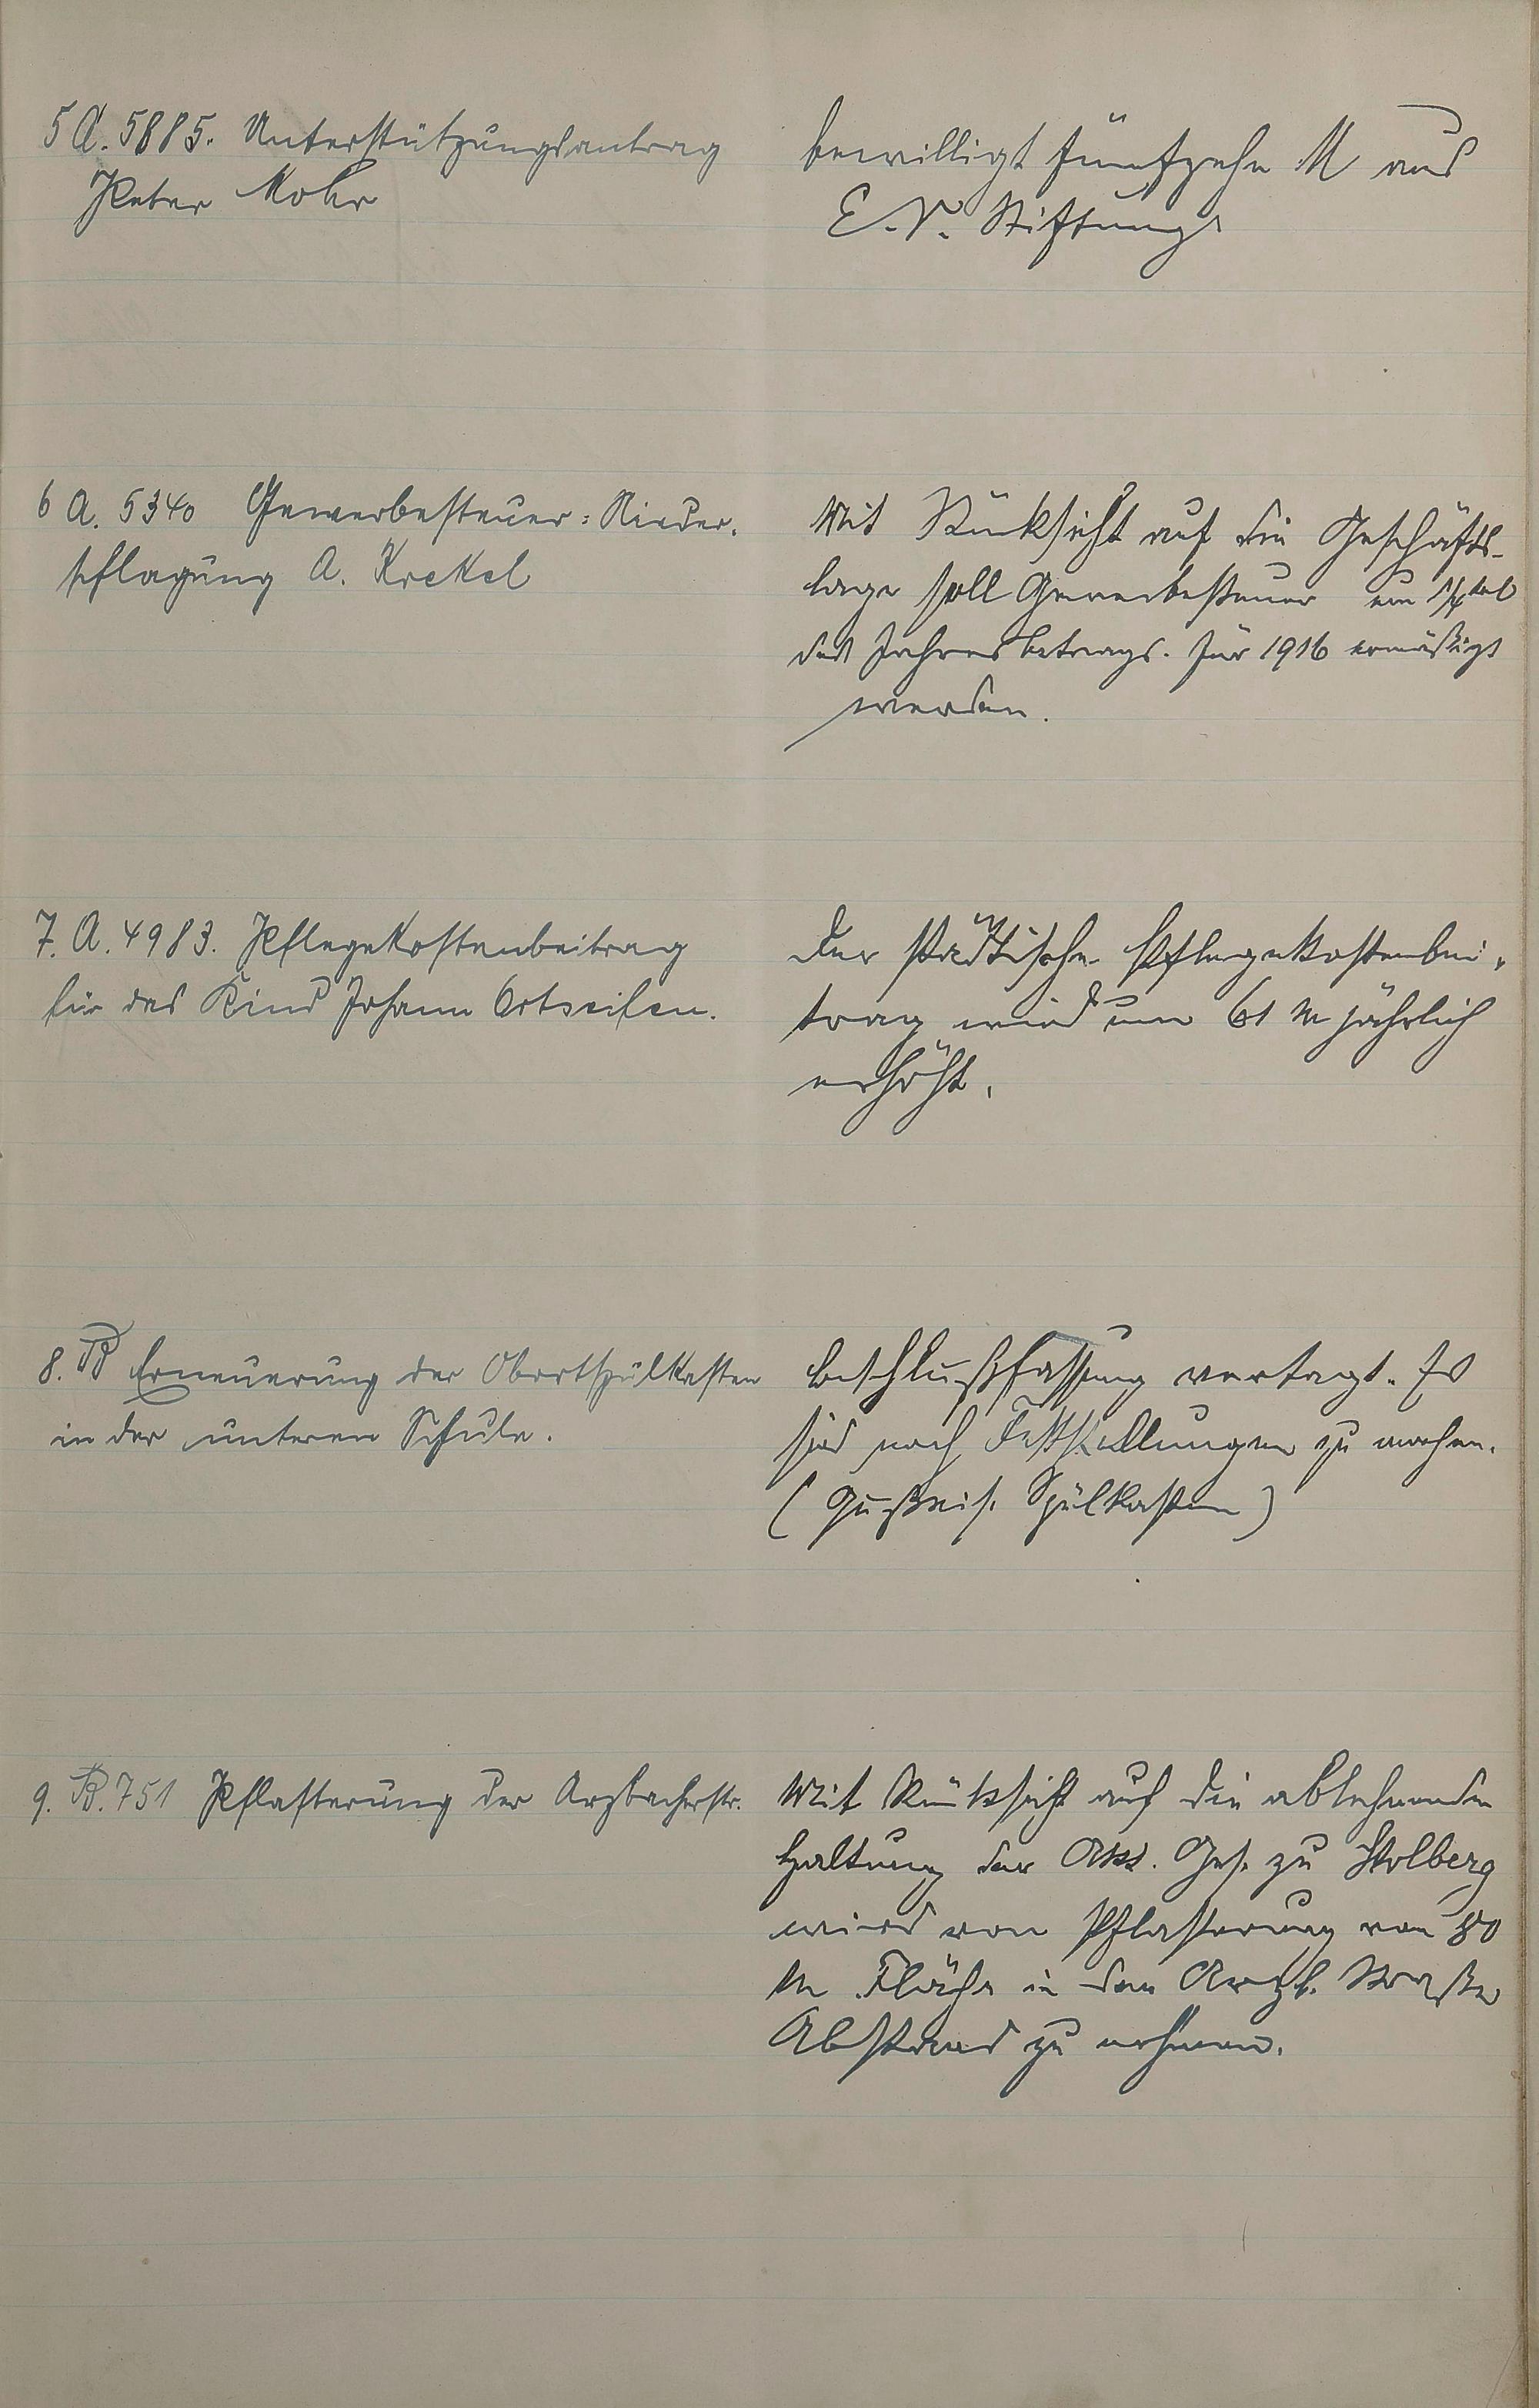 5 A. 5885. Unterstützungsantrag
Peter Mohr
bewilligt fünfzehn M aus
E. V. Stiftung
6 A. 5340 Gewerbesteuer-Nieder-
schlagung A. Krekel
Mit Rücksicht auf die Geschäfts-
lage soll Gewerbesteuer um 1/4tel
des Jahresbetrags für 1916 ermäßigt
werden.
7. A. 4983. Pflegekostenbeitrag
für das Kind Johann Ortseifen.
Der städtische Pflegekostenbei-
trag wird um 61 M jährlich
erhöht.
8. B Erneuerung der Abortspülkasten
in der unteren Schule.
Beschlußfassung vertagt. Es
sind noch Feststellungen zu machen.
(Gußeis. Spülkasten)
9. B. 751 Pflasterung der Arzbacherstr.
Mit Rücksicht auf die ablehnende
Haltung der Akt. Ges. zu Stolberg
wird von Pflasterung von 80
m Fläche in der Arzb. Straße
Abstand zu nehmen.